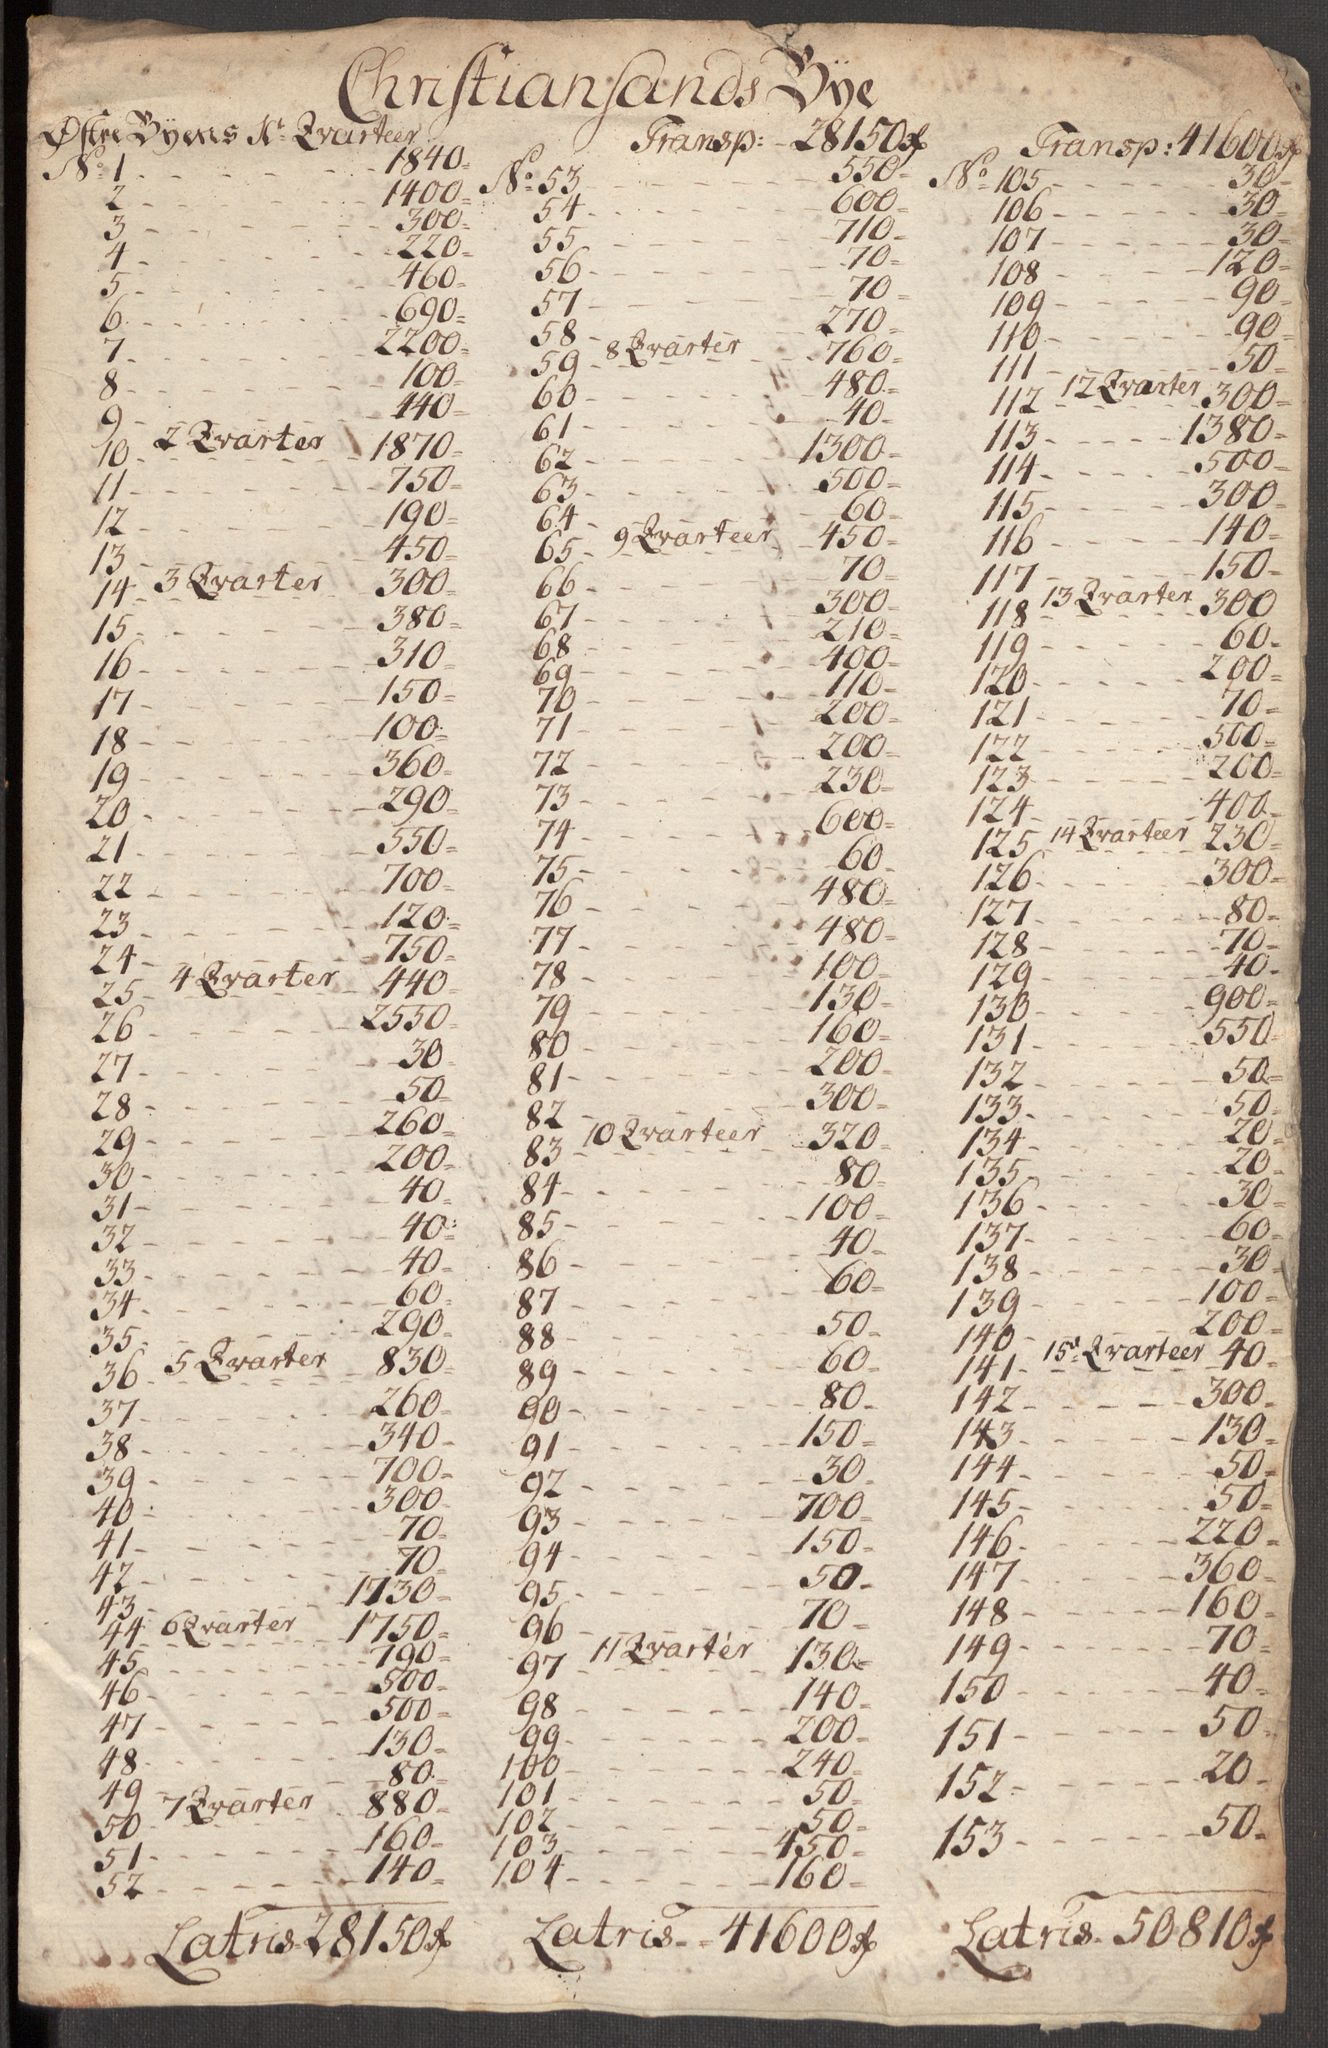 Christiansands Bye
Østre Byens 1te Qvarteer
No. 1 - 1840-
2 - 1400-
3 - 300-
4 - 220-
5 - 460-
6 - 690-
7 - 2200-
8 - 100-
9 - 440-
10 - 2 Qvarter 1870-
11 - 750-
12 - 190-
13 - 450-
14 - 3 Qvarter 300-
15 - 380-
16 - 310-
17 - 150-
18 - 100-
19 - 360-
20 - 290-
21 - 550-
22 - 700-
23 - 120-
24 - 750-
25 - 4 Qvarter 440-
26 - 2550-
27 - 30-
28 - 50-
29 - 260-
30 - 200-
31 - 40-
32 - 40-
33 - 40-
34 - 60-
35 - 290-
36 - 5 Qvarter 830-
37 - 260-
38 - 340-
39 - 700-
40 - 300-
41 - 70-
42 - 70-
43 - 1730-
44 6 Qvarter 1750-
45 - 790-
46 - 500-
47 - 500-
48 - 130-
49 - 80-
50 - 7 Qvarter 880-
51 - 160-
52 - 140-
Latris 28150
Transp: 28150
No. 53 - 550-
54 - 600-
55 - 710-
56 - 70-
57 - 70-
58 - 270-
59 - 8 Qvarter 760-
60 - 480-
61 - 40-
62 - 1300-
63 - 500-
64 - 60-
65 - 9 Qvarteer 450-
66 - 70-
67 - 300-
68 - 210-
69 - 400-
70 - 110-
71 - 200-
72 - 200-
73 - 230-
74 - 600-
75 - 60-
76 - 480-
77 - 480-
78 - 100-
79 - 130-
80 - 160-
81 - 200-
82 - 300-
83 - 10 Qvarteer 320-
84 - 80-
85 - 100-
86 - 40-
87 - 60-
88 - 50-
89 - 60-
90 - 80-
91 - 150-
92 - 30-
93 - 700-
94 - 150-
95 - 50-
96 - 70-
97 - 11 Qvarter 130-
98 - 140-
99 - 200-
100 - 240-
101 - 50-
102 - 50-
103 - 450-
104 - 160-
Latris - 41600
Transp: 41600
No. 105 - 30-
106 - 30-
107 - 30-
108 - 120-
109 - 90-
110 - 90-
111 - 50-
112 - 12 Qvarter 300-
113 - 1380-
114 - 500-
115 - 300-
116 - 140-
117 - 150-
118 - 13 Qvarter 300
119 - 60-
120 - 200-
121 - 70-
122 - 500-
123 - 200-
124 - 400-
125 14 Qvarteer 230-
126 - 300-
127 - 80-
128 - 70-
129 - 40-
130 - 900-
131 - 550-
132 - 50-
133 - 50-
134 - 20-
135 - 20-
136 - 30-
137 - 60-
138 - 30-
139 - 100-
140 - 200-
141 - 15d Qvarteer 40-
142 - 300-
143 - 130-
144 - 50-
145 - 50-
146 - 220-
147 - 360-
148 - 160-
149 - 70-
150 - 40-
151 - 50-
152 - 20-
153 - 50-
Latris - 50810